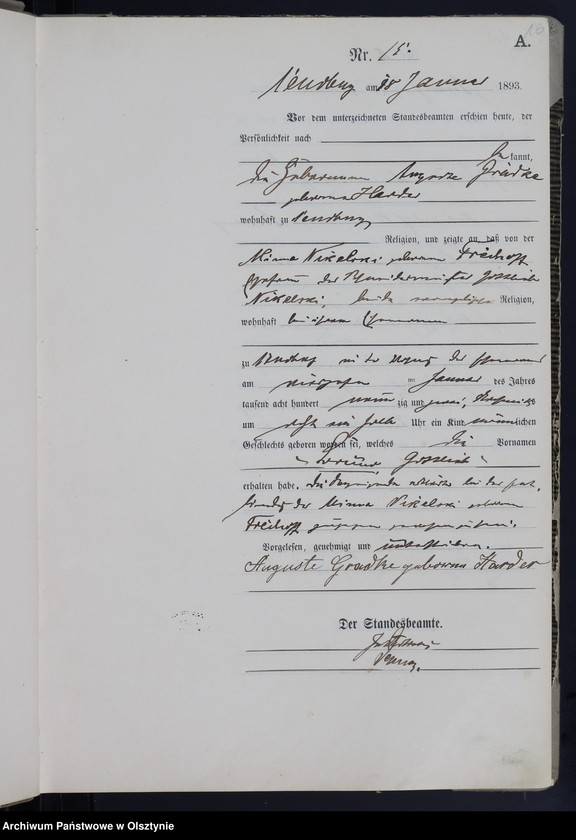 A.
Nr. 15.
am 18 Januar 1893.
Vor dem unterzeichneten Standesbeamten erschien heute, der
Persönlichkeit nach
kannt,
die Hebamme Auguste Gradke
geborene Harder
wohnhaft zu
Religion, und zeigte an, daß von der
Minna Nikelski geborene Freihoff
Ehefrau des Schneidermeister Gottlieb
Nikelski, beide evangelischer Religion,
wohnhaft bei ihrem Ehemanne
zu in der Wohnung des Ehemannes
am im Januar des Jahres
tausend acht hundert neun zig und
um acht ein halb Uhr ein Kind männlichen
Geschlechts geboren worden sei, welches die Vornamen
Gottlieb
erhalten habe. Die bei der
der Minna Nikelski geborene
Freihoff zugegen gewesen zu sein.
Vorgelesen, genehmigt und unterschrieben.
Auguste Gradke geborene Harder
Der Standesbeamte.
Archiwum Państwowe w Olsztynie